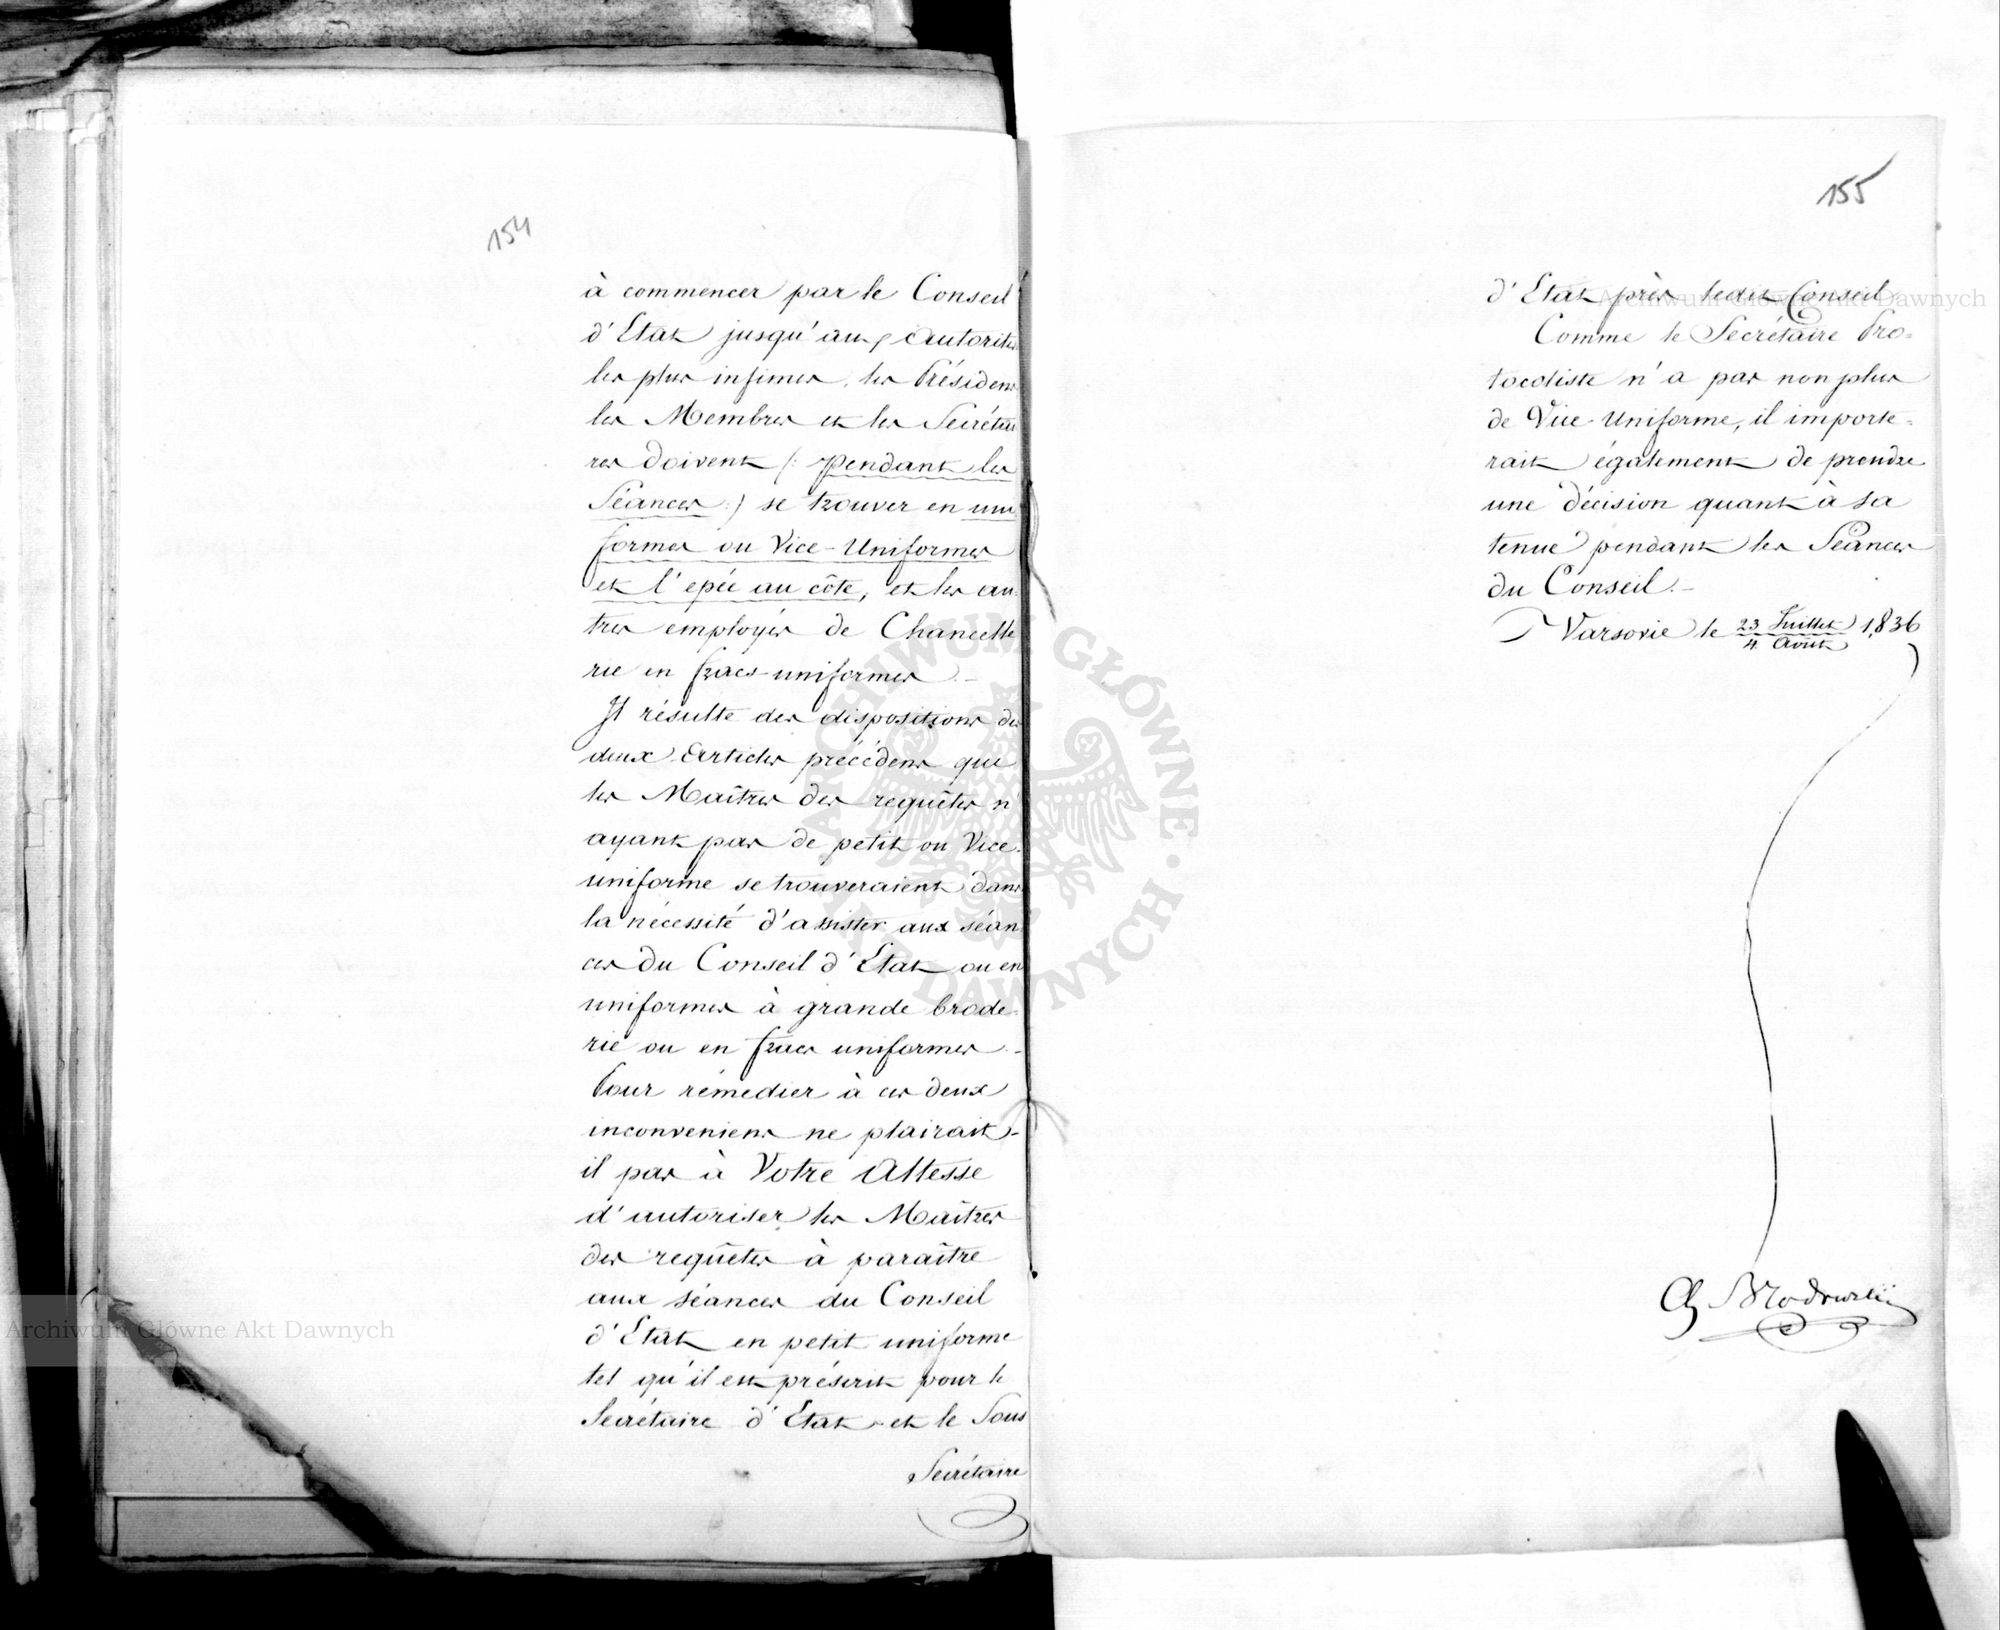 154
à commencer par le Conseil
d'Etat jusqu'aux autorités
les plus infimes, les Présidens
les Membres et les Secrétai
res doivent (: pendant les
Séances :) se trouver en uni
formes ou Vice-Uniformes
et l'epée au côte, et les au
tres employés de Chancelle
rie en fracs-uniformes. -
Il résulte des dispositions des
deux Articles précédens que
les Maîtres des requêtes n'
ayant pas de petit ou Vice-
uniforme se trouveraient dans
la nécessité d'assister aux séan
ces du Conseil d'Etat ou en
uniformes à grande brode-
rie ou en fracs uniformes. -
Pour rémedier à ces deux
inconveniens ne plairait-
il pas à Votre Altesse
d'autoriser les Maîtres
des requêtes à paraître
aux séances du Conseil
d'Etat en petit uniforme
tel qu'il est préscrit pour le
Secrétaire d'Etat et le Sous
Secrétaire
155
d'Etat près ledit Conseil
Comme le Secrétaire Pro-
tocoliste n'a pas non plus
de Vice-Uniforme, il importe-
rait également de prendre
une décision quant à sa
tenue pendant les Séances
du Conseil. -
Varsovie le 23 Juillet / 4 Août 1836
Archiwum Główne Akt Dawnych
Archiwum Główne Akt Dawnych
ARCHIWUM GŁÓWNE · AKT DAWNYCH ·